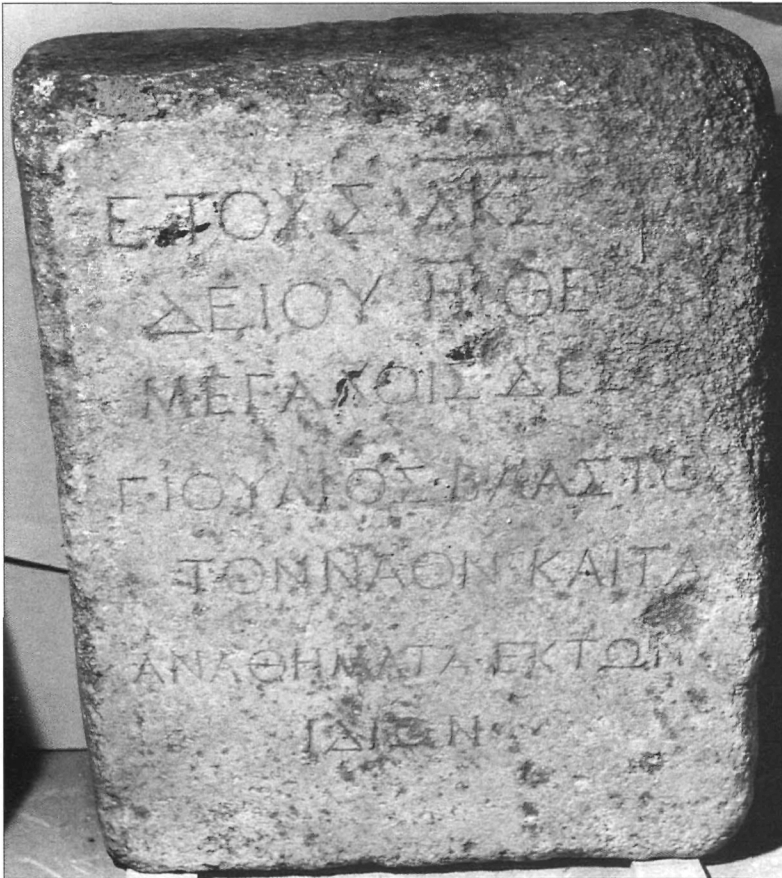 ΕΤΟΥΣ ΔΚΣ
ΔΕΙΟΥ Η ΘΕΟΙΣ
ΜΕΓΑΛΟΙΣ ΔΕΣ
Γ ΙΟΥΛΙΟΣ ΒΛΑΣΤΟ
ΤΟΝ ΝΑΟΝ ΚΑΙ ΤΑ
ΑΝΑΘΗΜΑΤΑ ΕΚ ΤΩΝ
ΙΔΙΩΝ